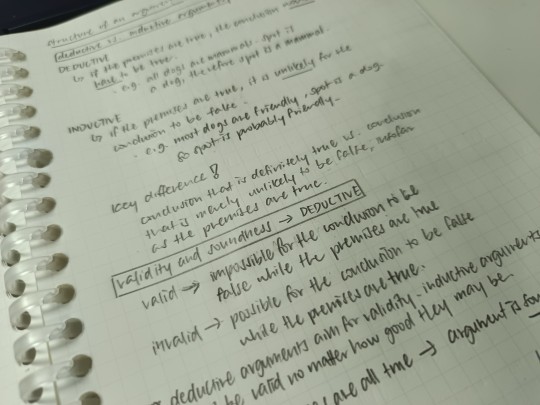 structure of an argument
deductive vs. inductive arguments
DEDUCTIVE
↳ if the premises are true, the conclusion
have to be true.
· e.g. all dogs are mammals. spot is
a dog, therefore spot is a mammal.
INDUCTIVE
↳ if the premises are true, it is unlikely for the
conclusion to be false.
· e.g. most dogs are friendly, spot is a dog.
so spot is probably friendly.
key difference?
conclusion that is definitely true vs. conclusion
that is merely unlikely to be false, insofar
as the premises are true.
validity and soundness → DEDUCTIVE
valid → impossible for the conclusion to be
false while the premises are true
invalid → possible for the conclusion to be false
while the premises are true.
deductive arguments aim for validity. inductive arguments
be valid no matter how good they may be.
are all true → argument is